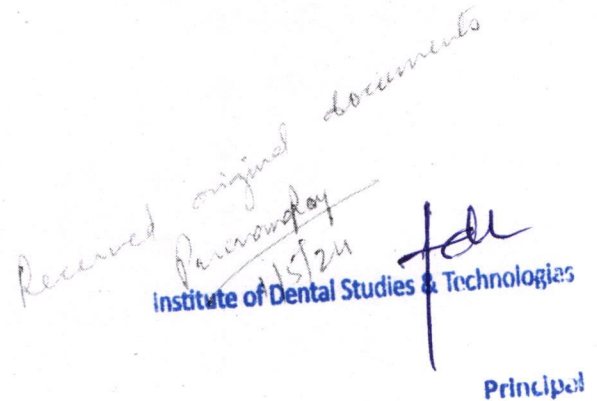 Received original documents
1/5/24
Institute of Dental Studies & Technologies
Principal